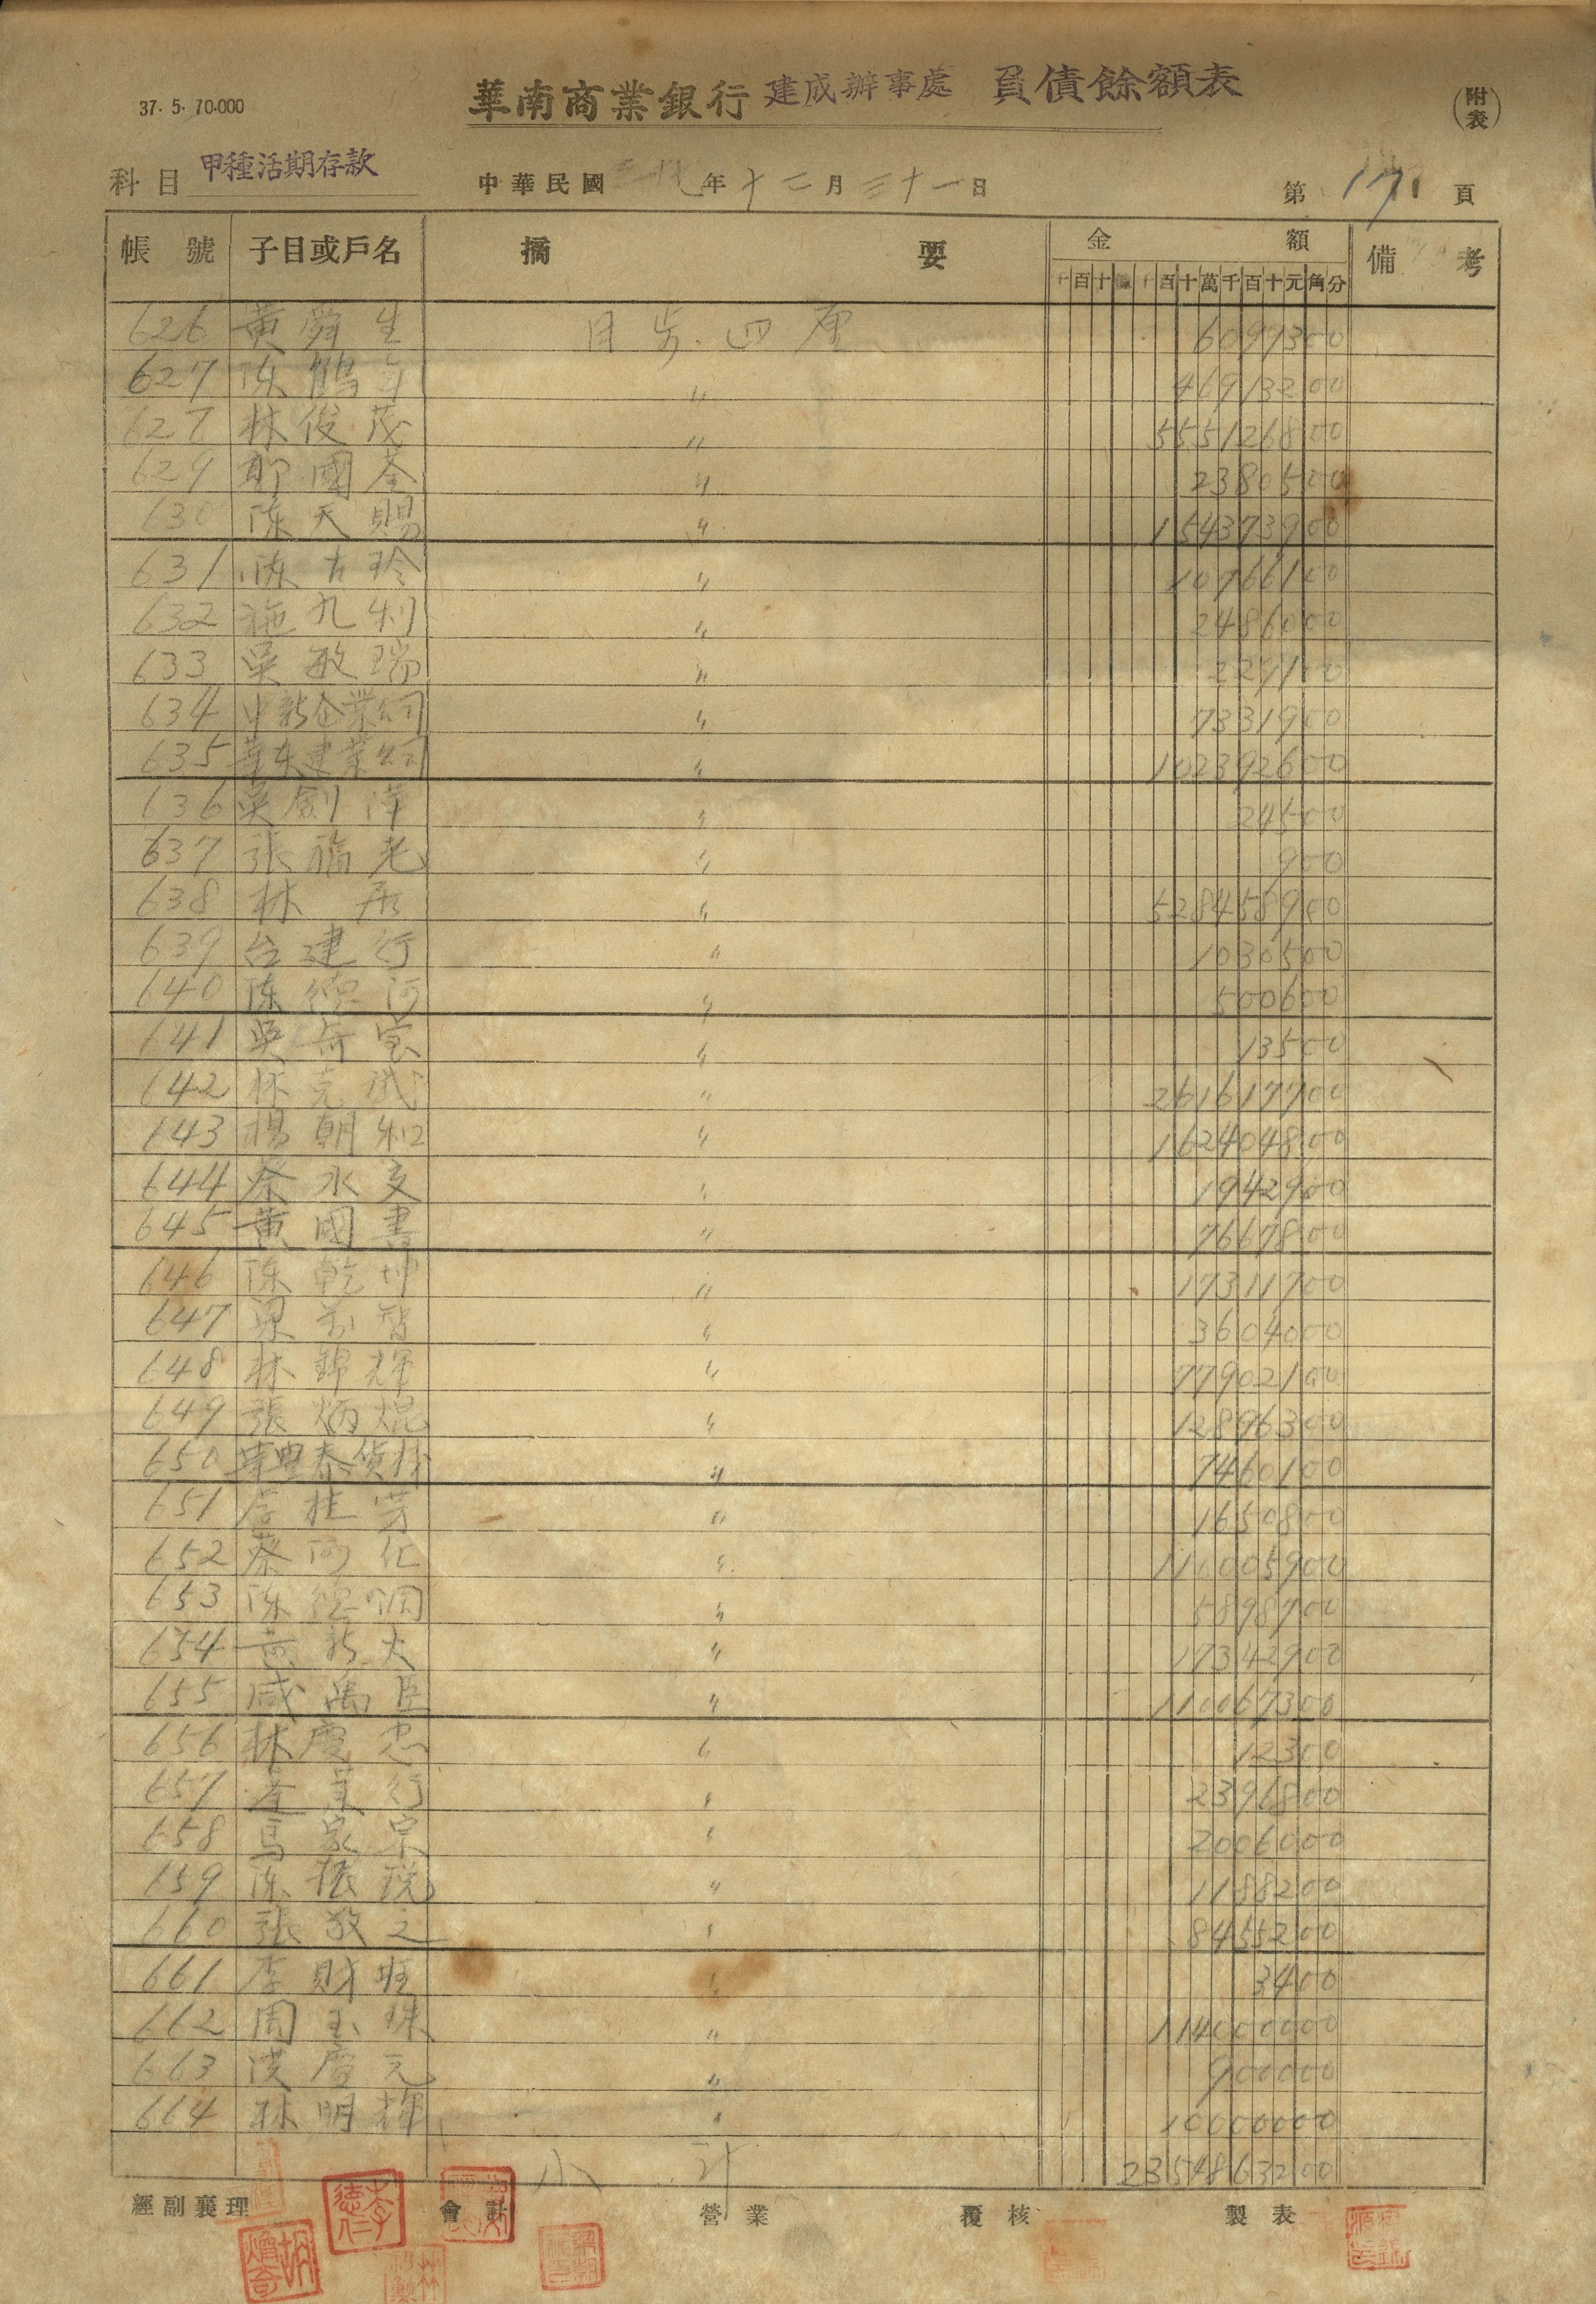 37. 5. 70.000
華南商業銀行 建成辦事處 負債餘額表
(附表)
科目 甲種活期存款 中華民國三十九年十二月三十一日 第 17 頁
帳號 子目或戶名 摘要 金額 備考
千百十億千百十萬千百十元角分
626 黃舜生 日步.四厘 6097300
627 陳鶴 〃 46913200
628 林俊茂 〃 55512680 0
629 鄭國荃 〃 2380500
630 陳天賜 〃 154373900
631 陳古玲 〃 10766100
632 施九利 〃 2486000
633 吳敏瑞 〃 229100
634 中新企業公司 〃 7331900
635 華東建業公司 〃 102392600
636 吳劍萍 〃 24500
637 張福老 〃 900
638 林居 〃 528458900
639 台建行 〃 1030500
640 陳德河 〃 500600
641 吳奇宝 〃 13500
642 林克武 〃 261617700
643 楊朝和 〃 162404800
644 蔡水文 〃 1942900
645 黃國書 〃 7667800
646 陳乾坤 〃 17311700
647 梁萬智 〃 3604000
648 林錦輝 〃 77902100
649 張炳焜 〃 12896300
650 華豐泰貨行 〃 7460100
651 李桂芳 〃 1650800
652 蔡阿化 〃 110005900
653 陳德 〃 5898700
654 黃新火 〃 17342900
655 咸禹臣 〃 110067300
656 林慶忠 〃 12300
657 荃業行 〃 2396800
658 馬家宗 〃 2006000
659 陳振銳 〃 1188200
660 張敬之 〃 8455200
661 李財旺 〃 3400
662 周玉珠 〃 114000000
663 洪慶元 〃 900000
664 林明輝 〃 10000000
小計 2354863200
經副襄理 會計 營業 覆核 製表
李德仁
胡燈奇